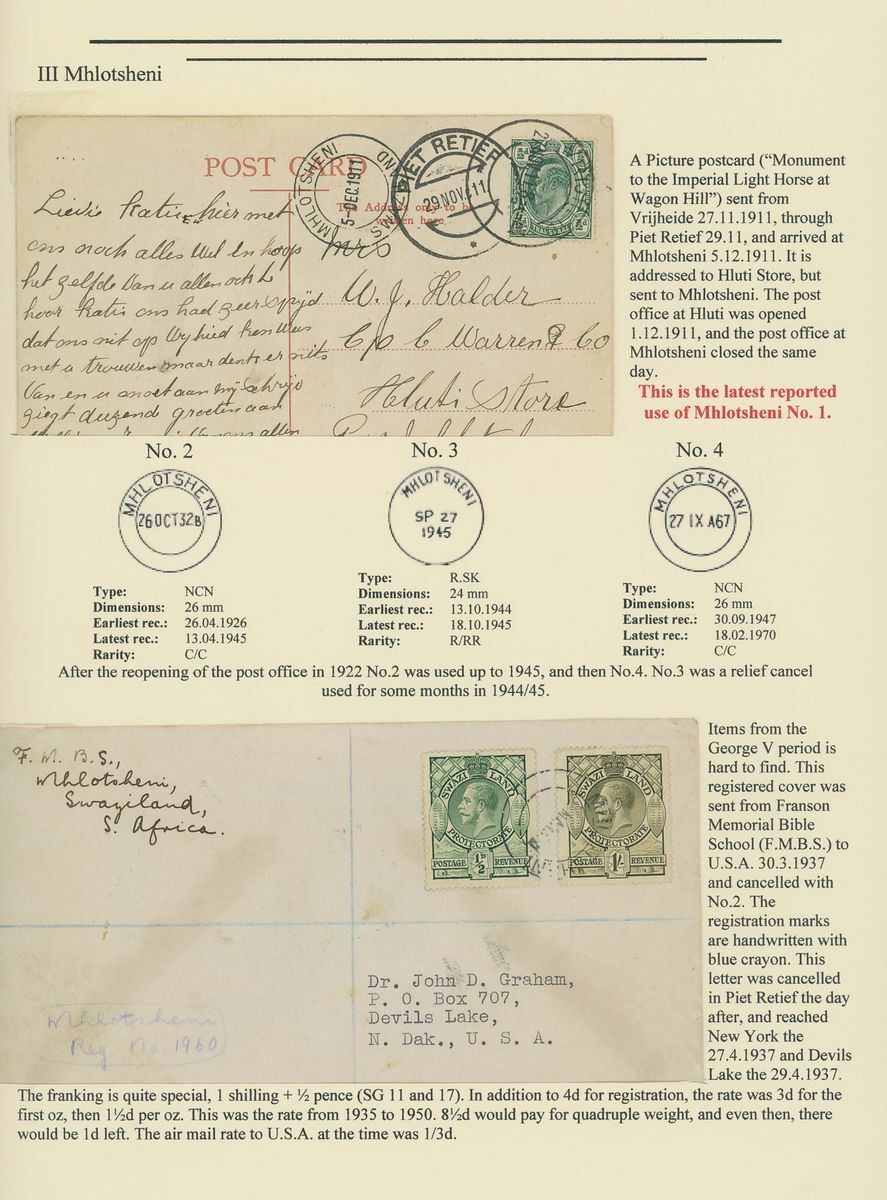 III Mhlotsheni
POST CARD
The Address only to be
written here.
MHLOTSHENI
SWAZILAND
5-DEC.1911
PIET RETIEF
29 NOV 11
½d
TRANSVAAL
Mrs
W. J. Halder
C/o C Warren & Co
Hluti Store
Lieve Katie hier met
ons noch alles wel en hoop
het zelfde van u allen och te
hoor Katie ons had zeer spijd
dat ons nit op
met u trouwen maar
Van en u moet aan mij schrijv
ziegt duzend groeten aan
allen
A Picture postcard (“Monument
to the Imperial Light Horse at
Wagon Hill”) sent from
Vrijheide 27.11.1911, through
Piet Retief 29.11, and arrived at
Mhlotsheni 5.12.1911. It is
addressed to Hluti Store, but
sent to Mhlotsheni. The post
office at Hluti was opened
1.12.1911, and the post office at
Mhlotsheni closed the same
day.
This is the latest reported
use of Mhlotsheni No. 1.
No. 2
MHLOTSHENI
26 OCT 32B
Type: NCN
Dimensions: 26 mm
Earliest rec.: 26.04.1926
Latest rec.: 13.04.1945
Rarity: C/C
No. 3
MHLOTSHENI
SP 27
1945
Type: R.SK
Dimensions: 24 mm
Earliest rec.: 13.10.1944
Latest rec.: 18.10.1945
Rarity: R/RR
No. 4
MHLOTSHENI
27 IX A67
Type: NCN
Dimensions: 26 mm
Earliest rec.: 30.09.1947
Latest rec.: 18.02.1970
Rarity: C/C
After the reopening of the post office in 1922 No.2 was used up to 1945, and then No.4. No.3 was a relief cancel
used for some months in 1944/45.
F. M. B. S.,
Mhlotsheni,
Swaziland,
S. Africa.
SWAZI LAND
PROTECTORATE
POSTAGE ½D REVENUE
SWAZI LAND
PROTECTORATE
POSTAGE 1/- REVENUE
Dr. John D. Graham,
P. O. Box 707,
Devils Lake,
N. Dak., U. S. A.
Mhlotsheni
Reg No. 1960
Items from the
George V period is
hard to find. This
registered cover was
sent from Franson
Memorial Bible
School (F.M.B.S.) to
U.S.A. 30.3.1937
and cancelled with
No.2. The
registration marks
are handwritten with
blue crayon. This
letter was cancelled
in Piet Retief the day
after, and reached
New York the
27.4.1937 and Devils
Lake the 29.4.1937.
The franking is quite special, 1 shilling + ½ pence (SG 11 and 17). In addition to 4d for registration, the rate was 3d for the
first oz, then 1½d per oz. This was the rate from 1935 to 1950. 8½d would pay for quadruple weight, and even then, there
would be 1d left. The air mail rate to U.S.A. at the time was 1/3d.